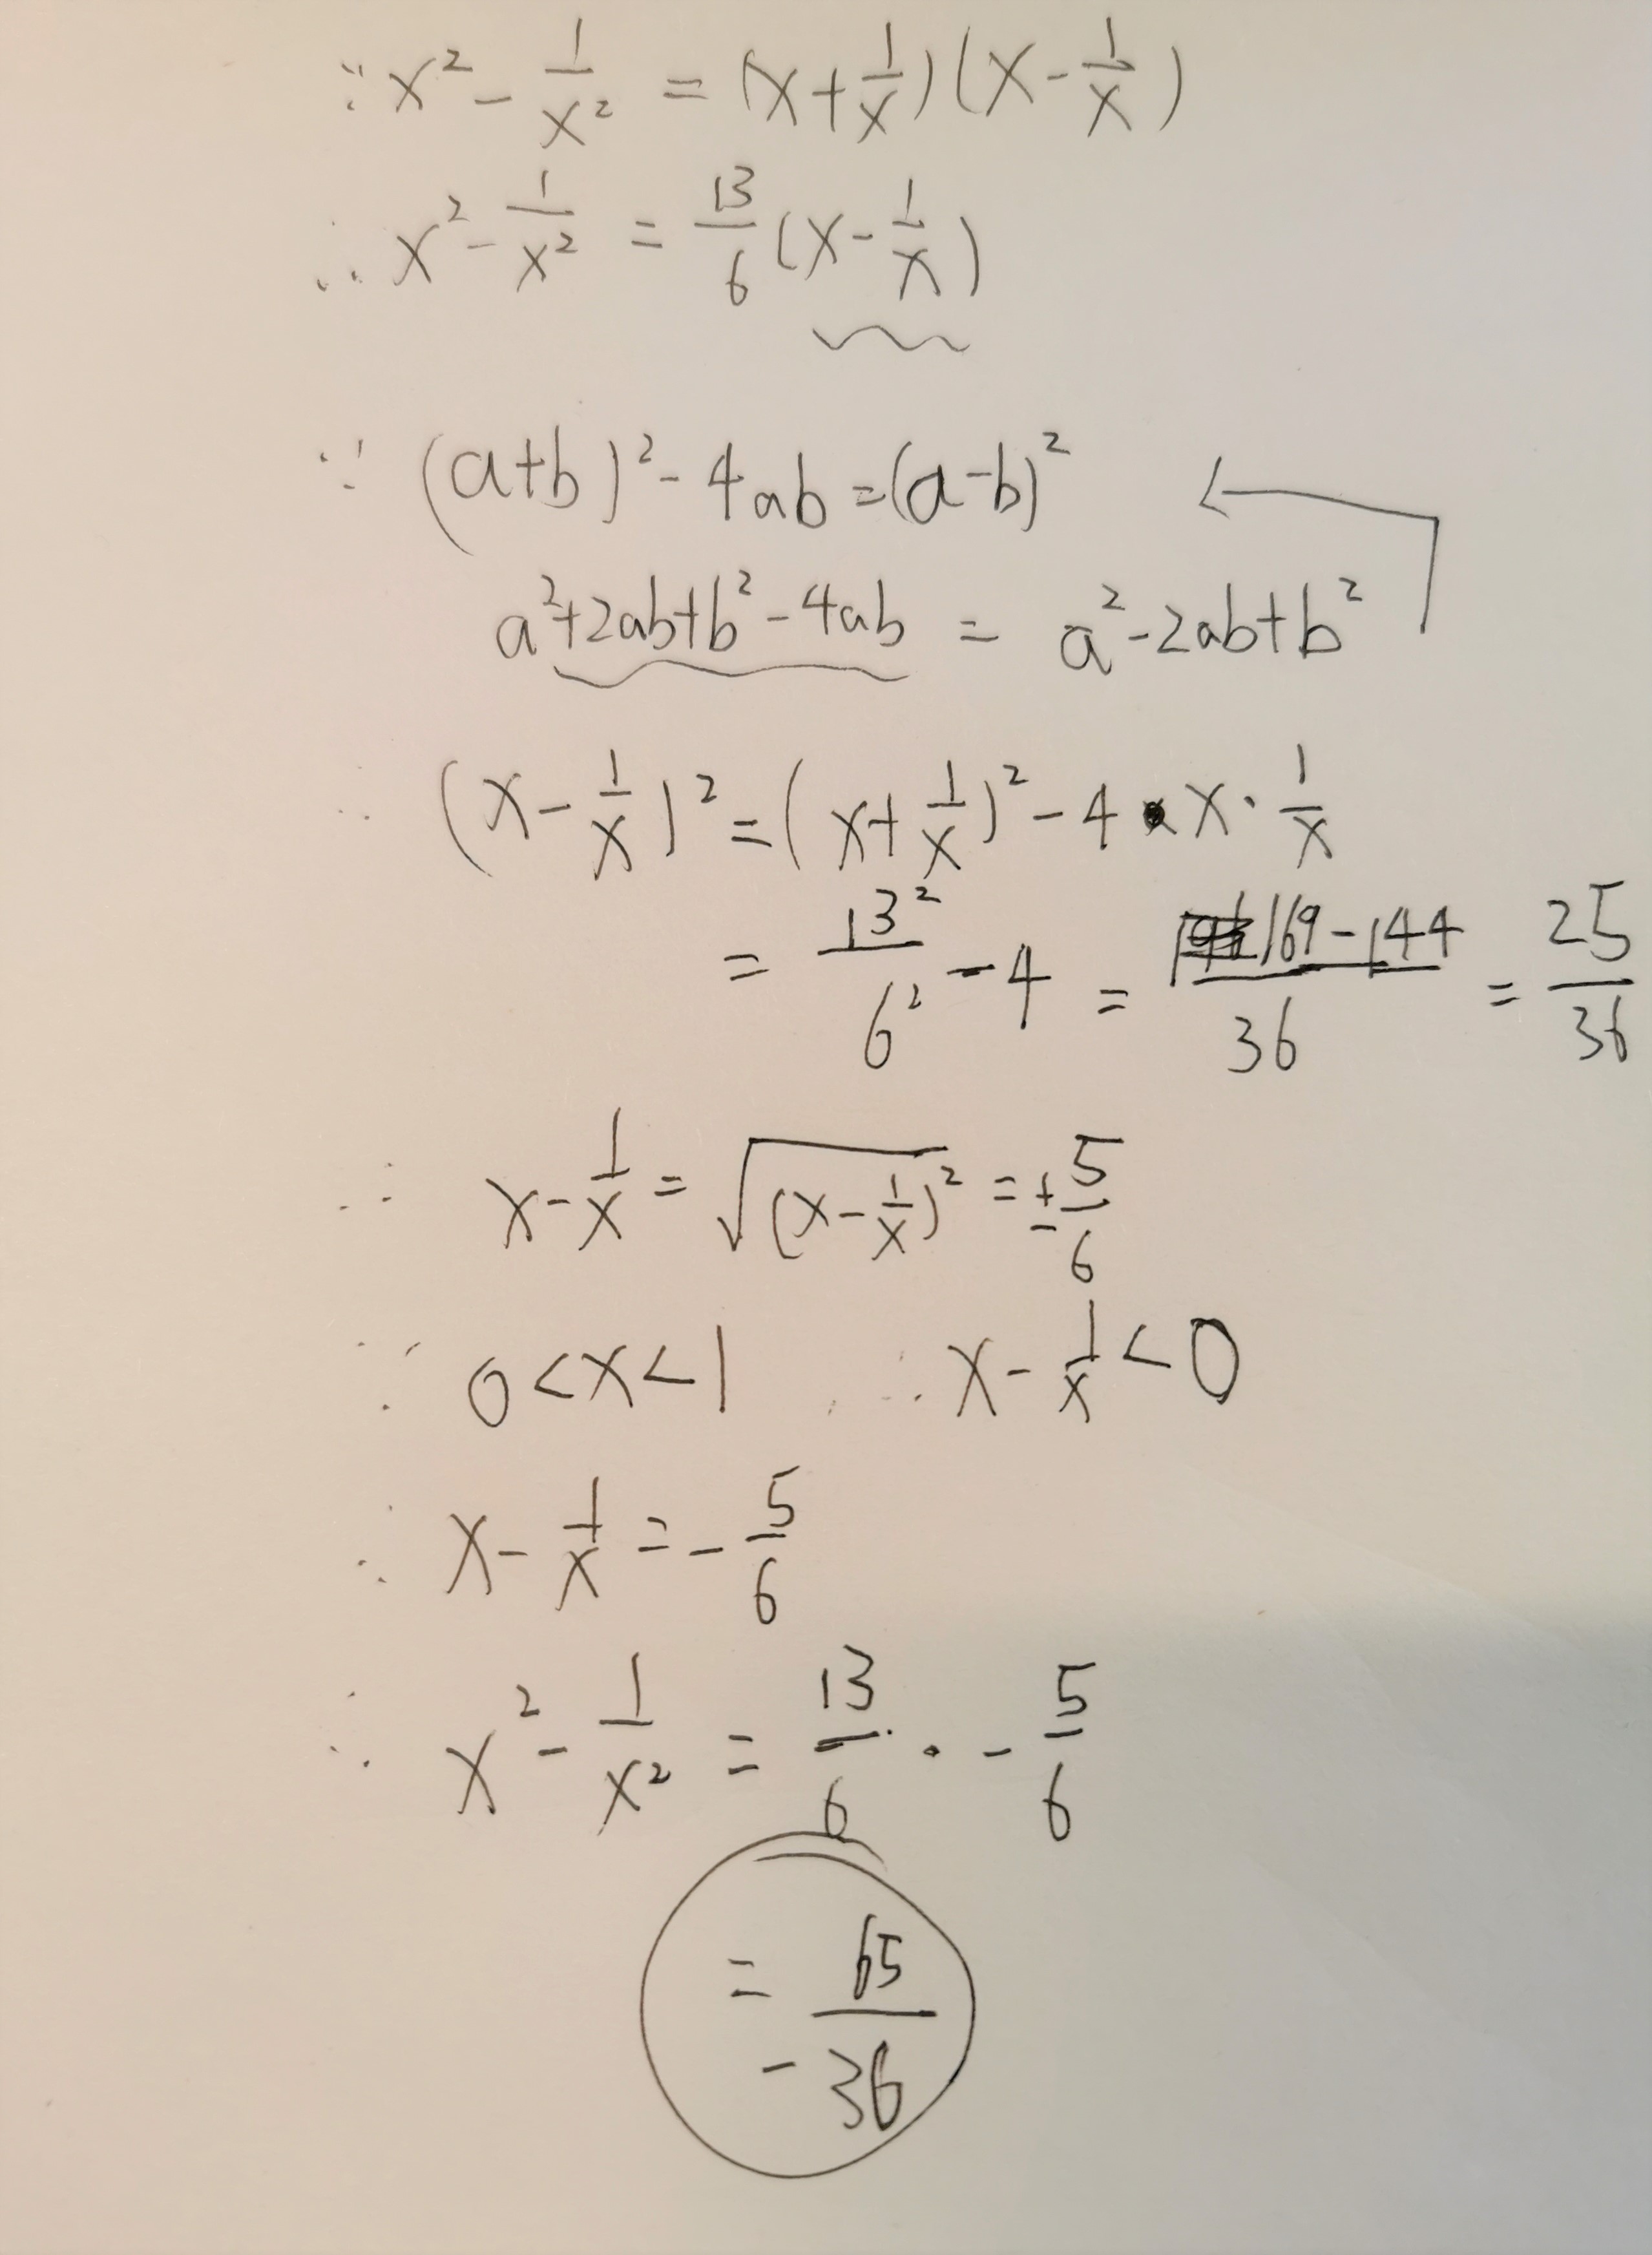 ∵ x² - 1/x² = (x + 1/x)(x - 1/x)
∴ x² - 1/x² = 13/6 (x - 1/x)
∵ (a+b)² - 4ab = (a-b)²
a² + 2ab + b² - 4ab = a² - 2ab + b²
∴ (x - 1/x)² = (x + 1/x)² - 4 x · 1/x
= 13²/6² - 4 = (169 - 144)/36 = 25/36
∴ x - 1/x = √(x - 1/x)² = ± 5/6
∵ 0 < x < 1 ∴ x - 1/x < 0
∴ x - 1/x = - 5/6
∴ x² - 1/x² = 13/6 · - 5/6
= - 65/36